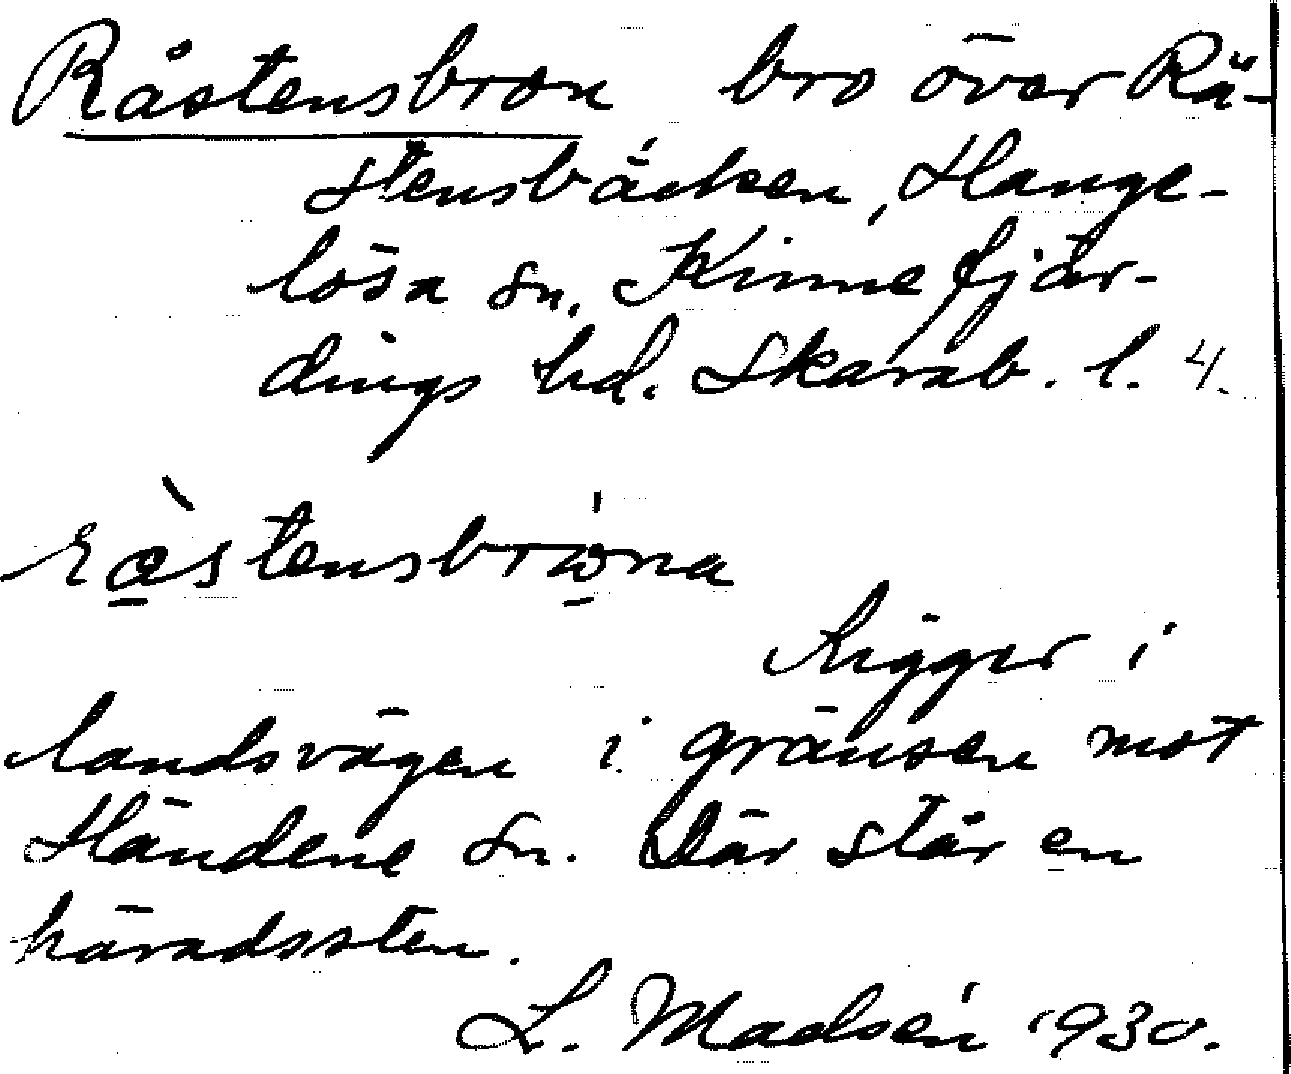 Råstensbron bro över Rå-
stensbäcken, Hange-
lösa sn, Kinnefjär-
dings hd. Skarab. l. 4.
ràstensbrώ̲na
Ligger i
landsvägen i gränsen mot
Händene sn. Där står en
häradssten.
L. Madsén 1930.